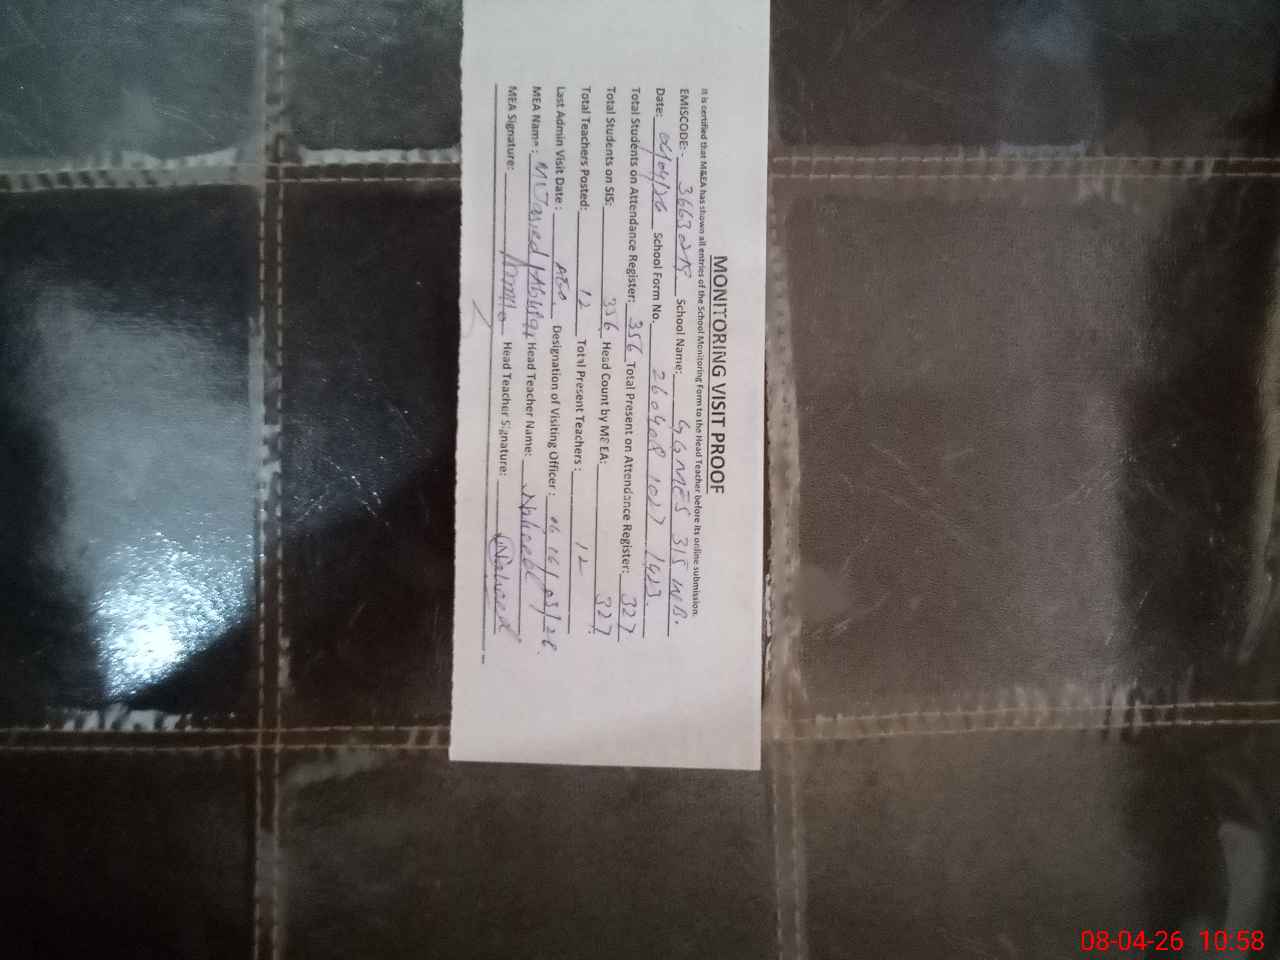 MONITORING VISIT PROOF
It is certified that M&EA has shown all entries of the School Monitoring Form to the Head Teacher before its online submission.
EMISCODE:- School Name: GGMES 315 W.B.
Date: School Form No.
Total Students on Attendance Register: 356 Total Present on Attendance Register: 327
Total Students on SIS: 356 Head Count by M&EA: 327
Total Teachers Posted: 12 Total Present Teachers: 12
Last Admin Visit Date: AEO Designation of Visiting Officer:
MEA Name: Head Teacher Name: Naheed
MEA Signature: Head Teacher Signature: Naheed
08-04-26 10:58